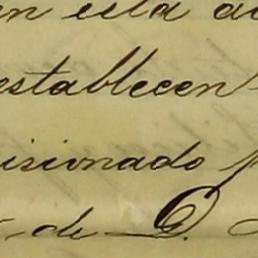 en esta
establecen
isionado
de D.